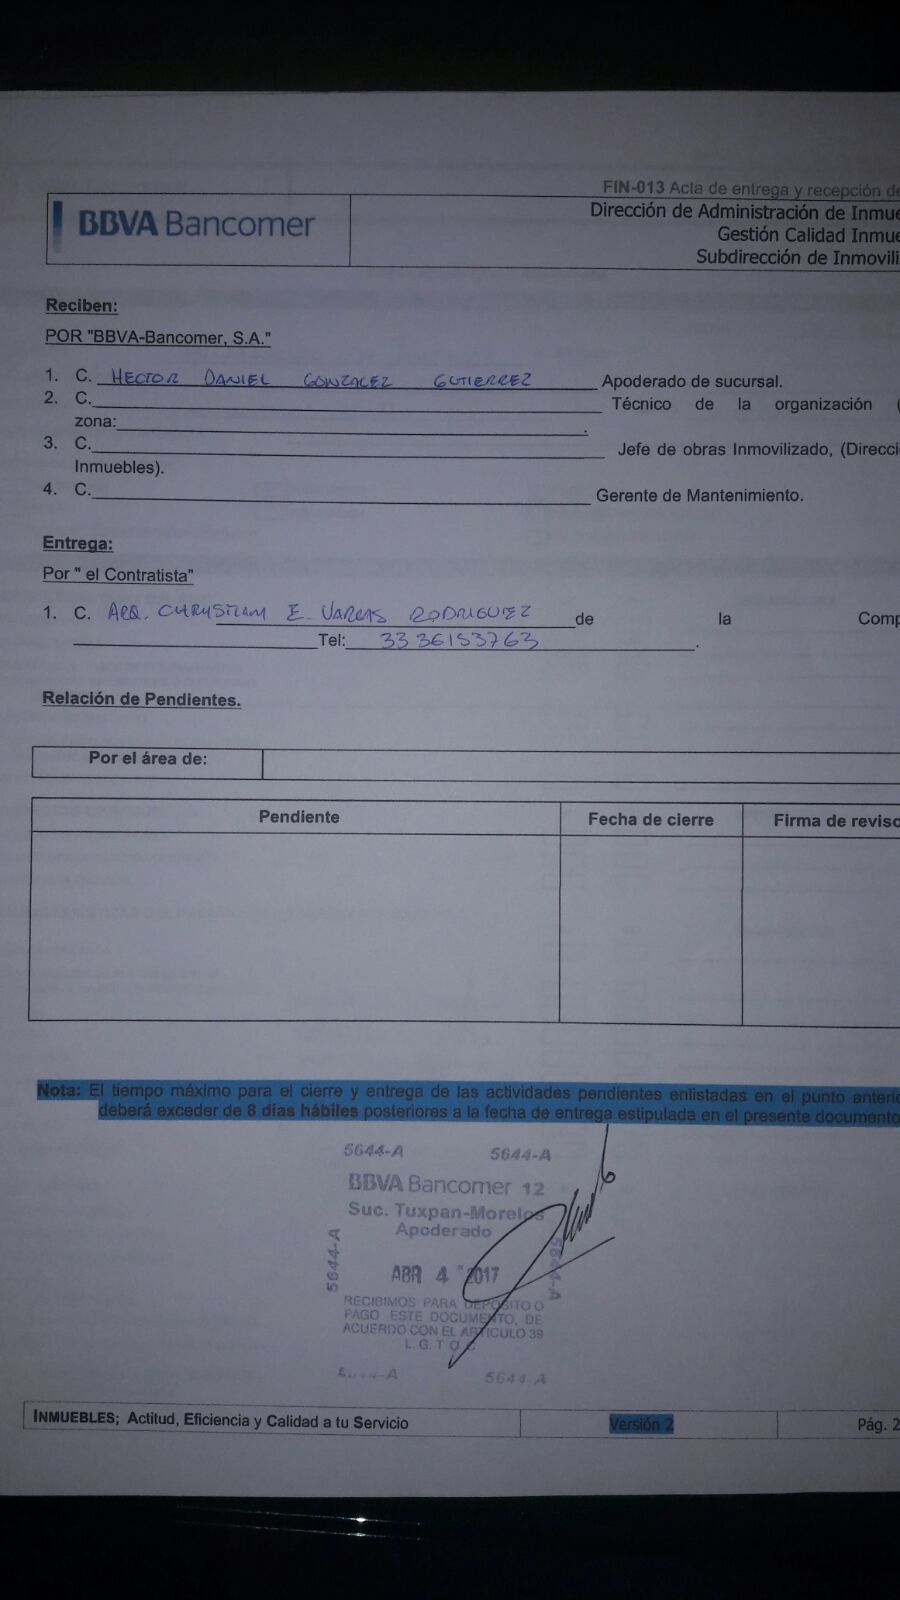 FIN-013 Acta de entrega y recepción de
BBVA Bancomer
Dirección de Administración de Inmue
Gestión Calidad Inmue
Subdirección de Inmovili
Reciben:
POR "BBVA-Bancomer, S.A."
1. C. HECTOR DANIEL GONZALEZ GUTIERREZ Apoderado de sucursal.
2. C. Técnico de la organización (
zona: .
3. C. Jefe de obras Inmovilizado, (Direcci
Inmuebles).
4. C. Gerente de Mantenimiento.
Entrega:
Por " el Contratista"
1. C. ARQ. CHRYSTIAM E. VARGAS RODRIGUEZ de la Comp
Tel: 33 36153763 .
Relación de Pendientes.
Por el área de:
Pendiente Fecha de cierre Firma de reviso
Nota: El tiempo máximo para el cierre y entrega de las actividades pendientes enlistadas en el punto anterio
deberá exceder de 8 días hábiles posteriores a la fecha de entrega estipulada en el presente documento
5644-A 5644-A
BBVA Bancomer 12
Suc. Tuxpan-Morelos
Apoderado
5644-A 5644-A
ABR 4 2017
RECIBIMOS PARA DEPOSITO O
PAGO ESTE DOCUMENTO, DE
ACUERDO CON EL ARTICULO 39
L. G. T O C
5644-A
INMUEBLES; Actitud, Eficiencia y Calidad a tu Servicio Versión 2 Pág. 2